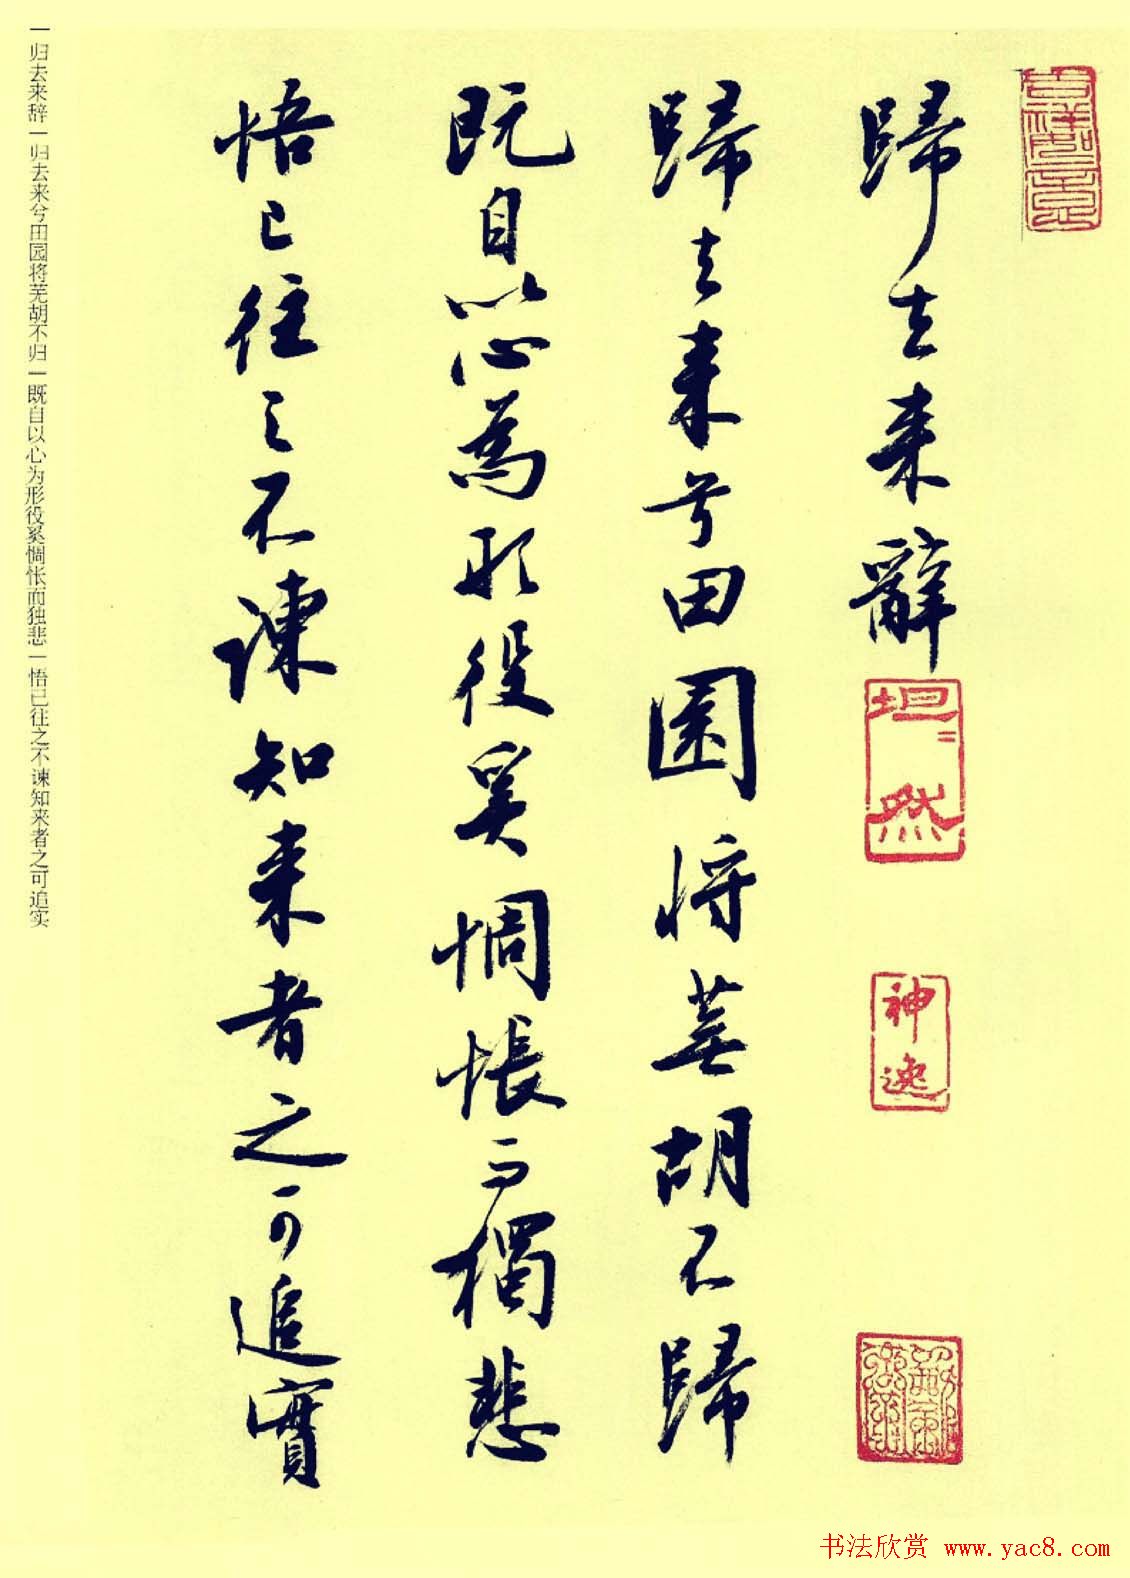 歸去来辭
坦然
神逸
歸去来兮田園将蕪胡不歸
既自以心為形役奚惆悵而獨悲
悟已往之不諫知来者之可追實
一归去来辞一归去来兮田园将芜胡不归一既自以心为形役奚惆怅而独悲一悟已往之不谏知来者之可追实
书法欣赏 www.yac8.com